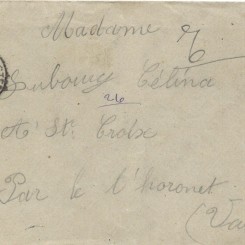 Madame
Aubourg Célina
26
A St Croix
Par le t'horonet
(Va